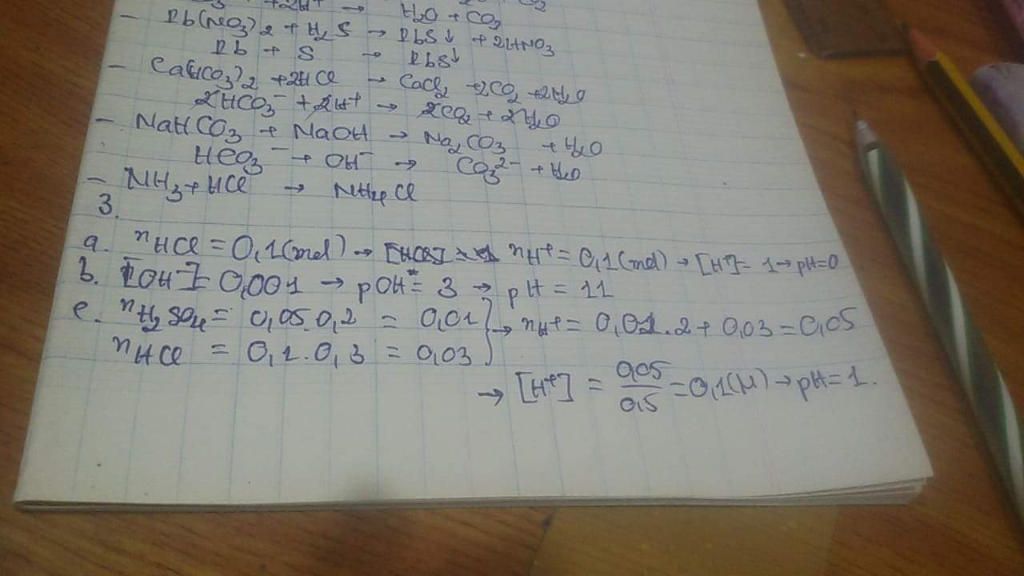 + 2H⁺ → H₂O + CO₂
- Pb(NO₃)₂ + H₂S → PbS↓ + 2HNO₃
Pb + S → PbS↓
- Ca(HCO₃)₂ + 2HCl → CaCl₂ + 2CO₂ + 2H₂O
2HCO₃⁻ + 2H⁺ → 2CO₂ + 2H₂O
- NaHCO₃ + NaOH → Na₂CO₃ + H₂O
HCO₃⁻ + OH⁻ → CO₃²⁻ + H₂O
- NH₃ + HCl → NH₄Cl
3.
a. nHCl = 0,1(mol) → nH⁺ = 0,1(mol) → [H⁺] = 1 → pH = 0
b. [OH⁻] = 0,001 → pOH = 3 → pH = 11
c. nH₂SO₄ = 0,05.0,2 = 0,01 } → nH⁺ = 0,01.2 + 0,03 = 0,05
nHCl = 0,1.0,3 = 0,03
→ [H⁺] = 0,05/0,5 = 0,1(M) → pH = 1.